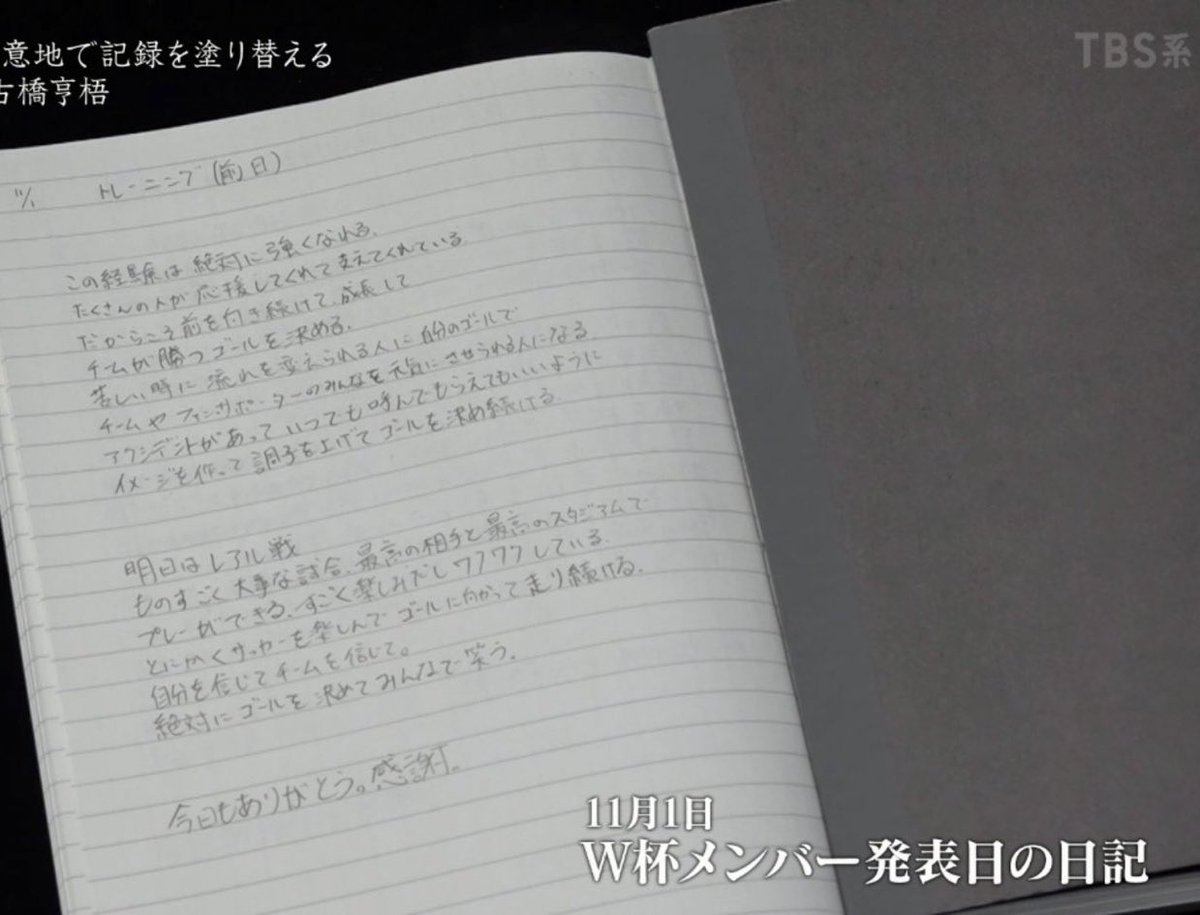 意地で記録を塗り替える
古橋亨梧
TBS系
11/1 トレーニング(前日)
この経験は絶対に強くなれる、
たくさんの人が応援してくれて支えてくれている
だからこそ前を付き続けて、成長して
チームが勝つゴールを決める、
苦しい時に流れを変えられる人に自分のゴールで
チームやファンサポーターのみんなを元気にさせられる人になる
アクシデントがあっていつでも呼んでもらえてもいいように
イメージを作って調子を上げてゴールを決め続ける
明日はレアル戦
ものすごく大事な試合、最高の相手と最高のスタジアムで
プレーができる、すごく楽しみだしワクワクしている、
とにかくサッカーを楽しんでゴールに向かって走り続ける、
自分を信じてチームを信じて。
絶対にゴールを決めてみんなで笑う。
今日もありがとう。感謝。
11月1日
W杯メンバー発表日の日記